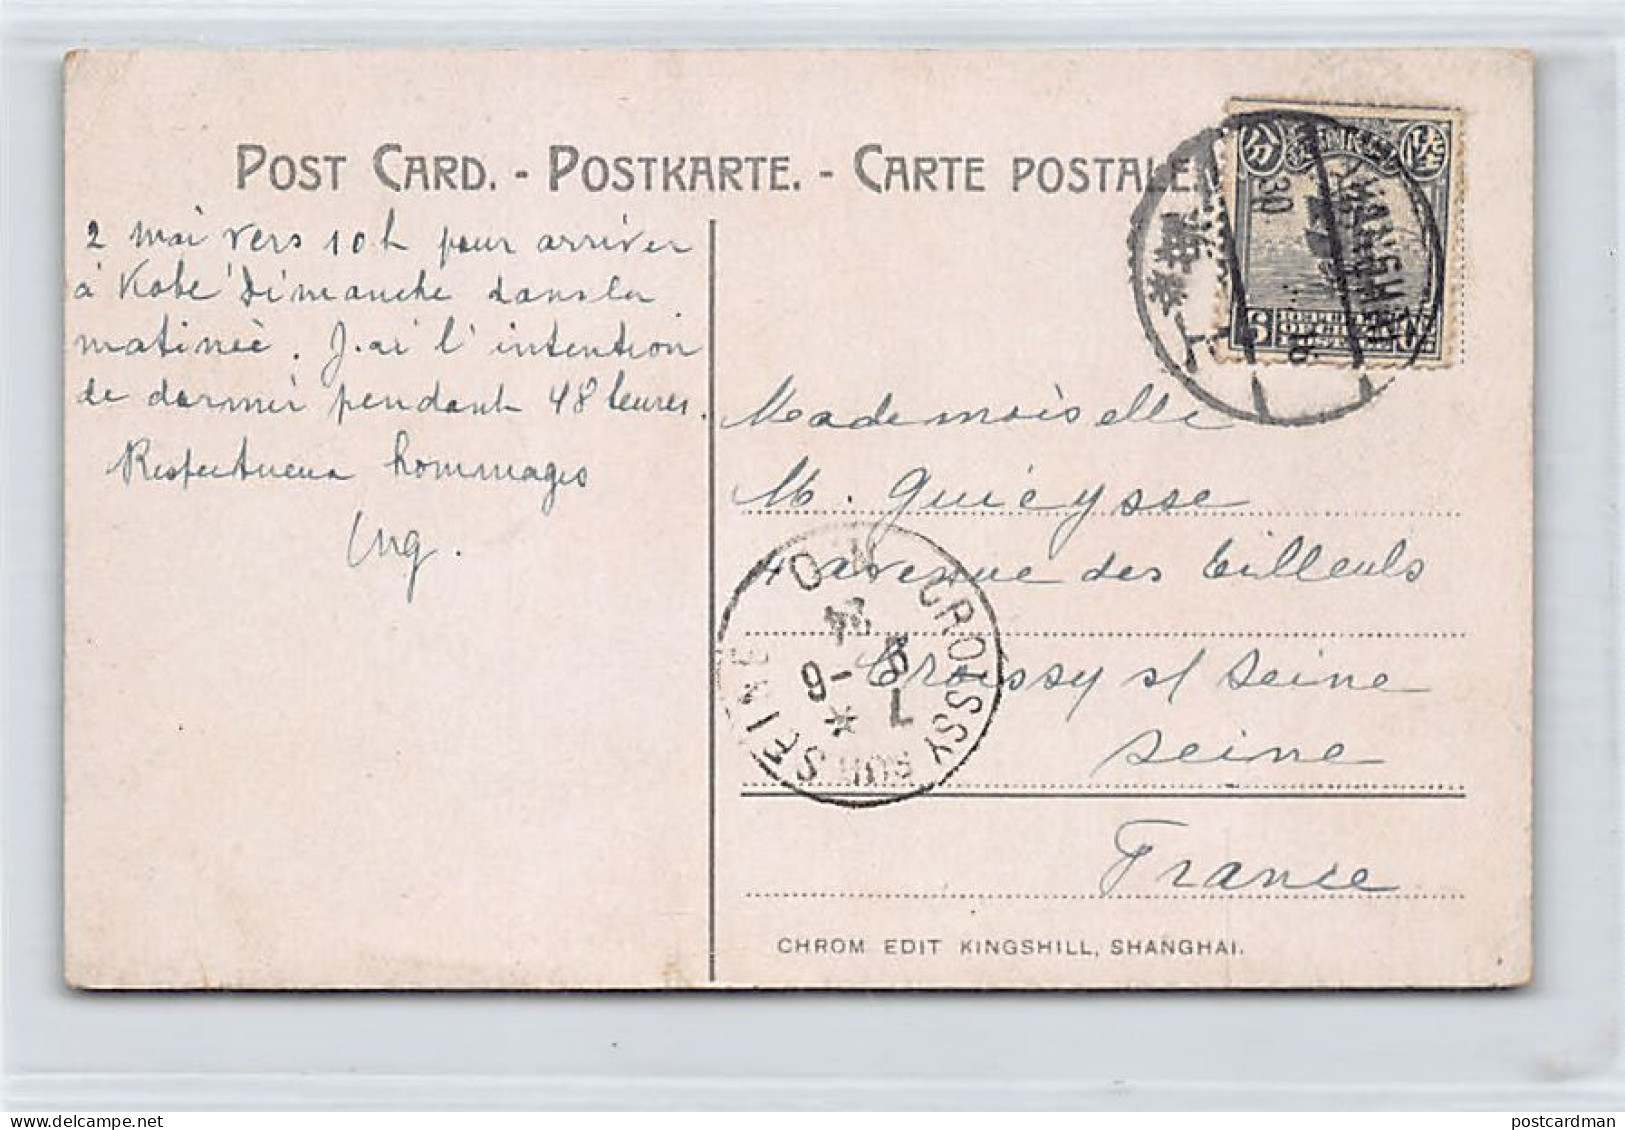 POST CARD. - POSTKARTE. - CARTE POSTALE.
2 mai vers 10 h pour arriver
à Kobé Dimanche dans la
matinée. J'ai l'intention
de dormir pendant 48 heures.
Respectueux hommages
分 陸
6
SHANGHAI
上海
Mademoiselle
M. Guieysse
4 avenue des Tilleuls
Croissy s/ Seine
Seine
France
CROISSY SUR SEINE
CHROM EDIT KINGSHILL, SHANGHAI.
postcardman